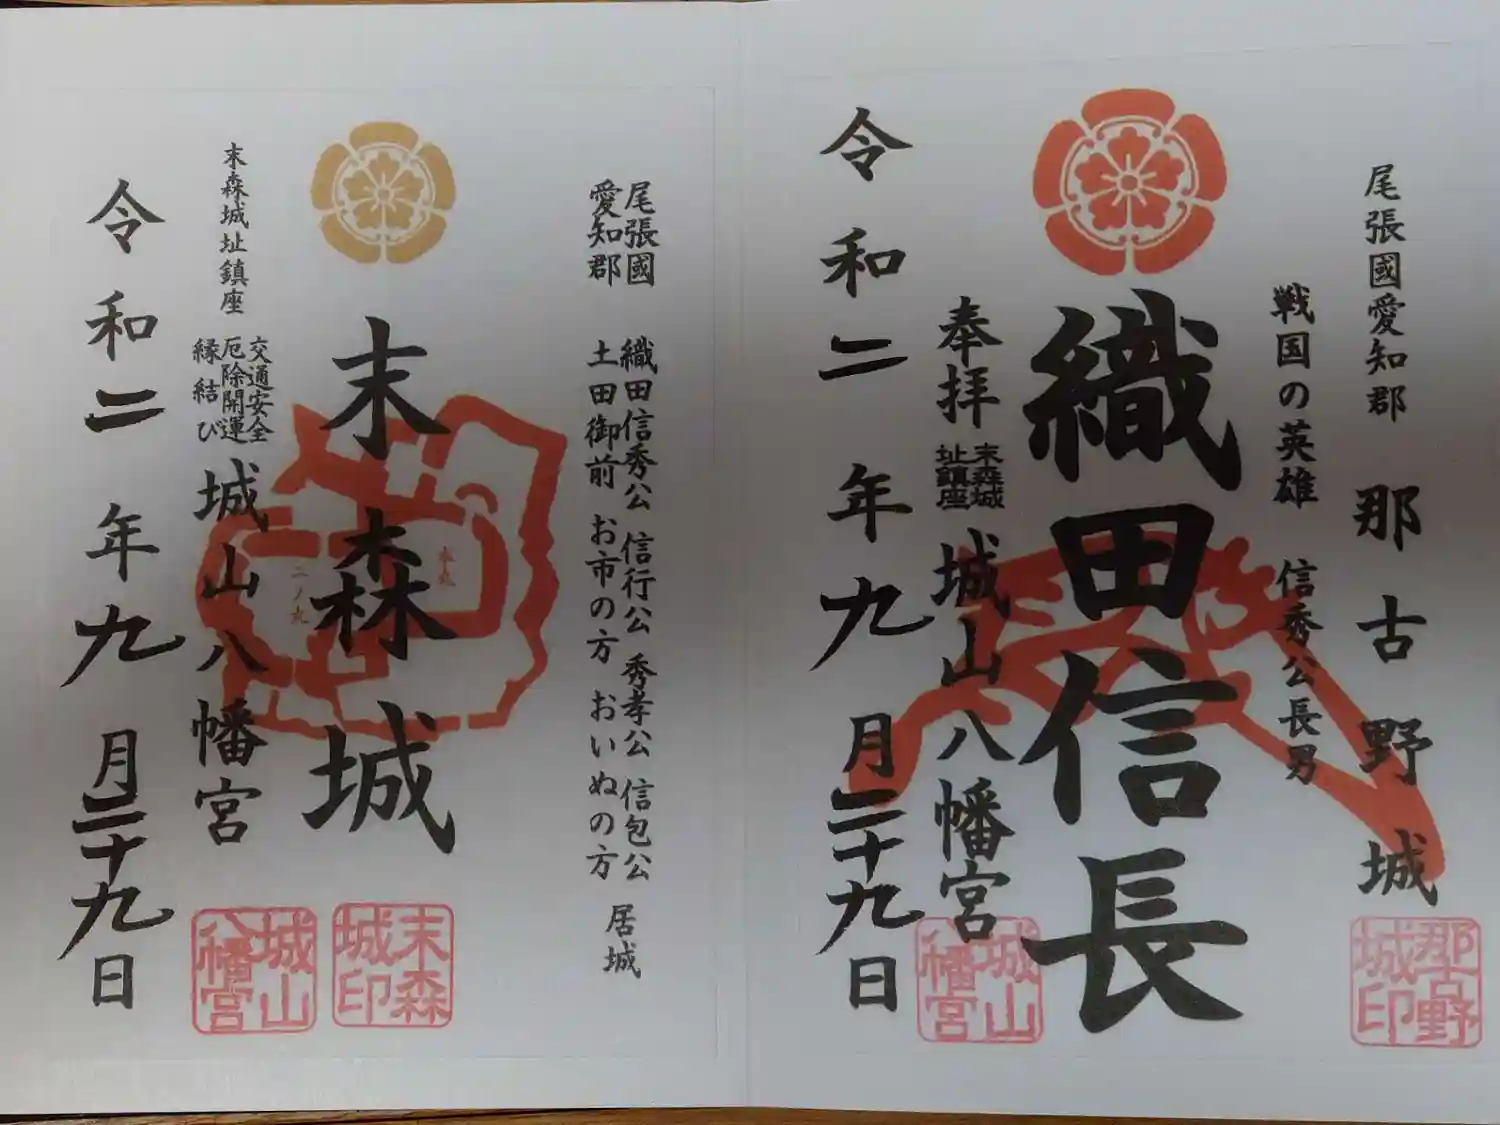 尾張國愛知郡
那古野城
戦国の英雄
信秀公長男
織田信長
奉拝
末森城
址鎮座
城山八幡宮
令和二年九月二十九日
那古野
城印
城山
八幡宮
尾張國
愛知郡
織田信秀公 信行公 秀孝公 信包公
土田御前 お市の方 おいぬの方
居城
末森城
本丸
二ノ丸
末森城址鎮座
交通安全
厄除開運
縁結び
城山八幡宮
令和二年九月二十九日
末森
城印
城山
八幡宮